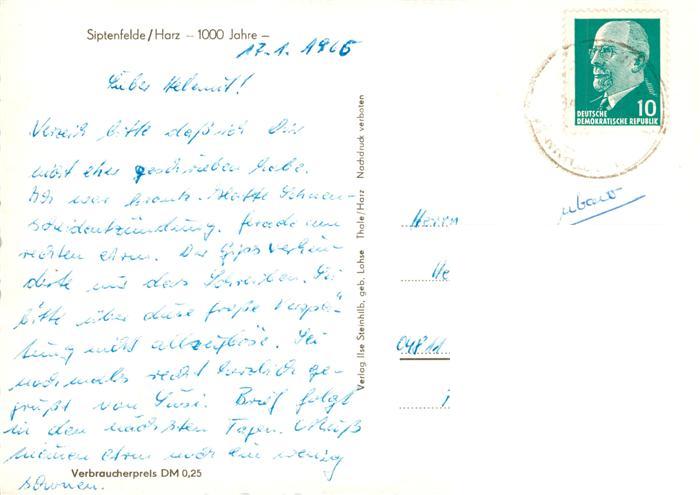 Siptenfelde/Harz – 1000 Jahre –
17.1.1966
Lieber Helmut!
Verzeih bitte daß ich Dir
nicht eher geschrieben habe.
Ich war krank. Hatte Sehnen-
scheidentzündung. Gerade am
rechten Arm. Der Gips verhin-
derte mir das Schreiben. Sei
bitte über diese große Verspä-
tung nicht allzu böse. Sei
nochmals recht herzlich ge-
grüßt von Susi. Brief folgt
in den nächsten Tagen. Muß
meinen Arm noch ein wenig
schonen.
Verbraucherpreis DM 0,25
Verlag Ilse Steinhilb, geb. Lohse Thale/Harz Nachdruck verboten
10
DEUTSCHE
DEMOKRATISCHE REPUBLIK
Herrn
He